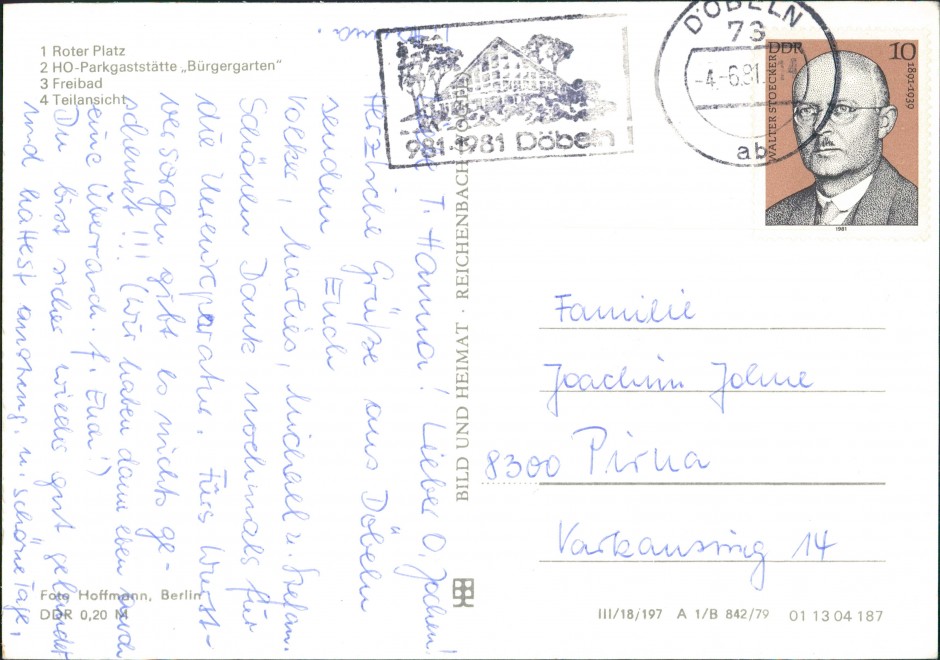 1 Roter Platz
2 HO-Parkgaststätte „Bürgergarten“
3 Freibad
4 Teilansicht
981-1981 Döbeln
DÖBELN
73
-4.-6.81.-14
ab
DDR 10
WALTER STOECKER 1891-1939
1981
T. Hanna! Lieber O. Jochen!
Herzliche Grüße aus Döbeln
senden Euch
Volker, Marlies, Michael u. Stefan.
Schönen Dank nochmals für
die Uhrenreparatur. Fürs Wurst-
versorgen gibt es nichts ge-
schenkt!!! (Wir haben dann eben auch
eine Überrasch. f. Euch!)
Du bist sicher wieder gut gelandet
und hattest anstreng. u. schöne Tage,
BILD UND HEIMAT · REICHENBACH
Familie
Joachim
8300 Pirna
14
Foto Hoffmann, Berlin
DDR 0,20 M
III/18/197 A 1/B 842/79 01 13 04 187